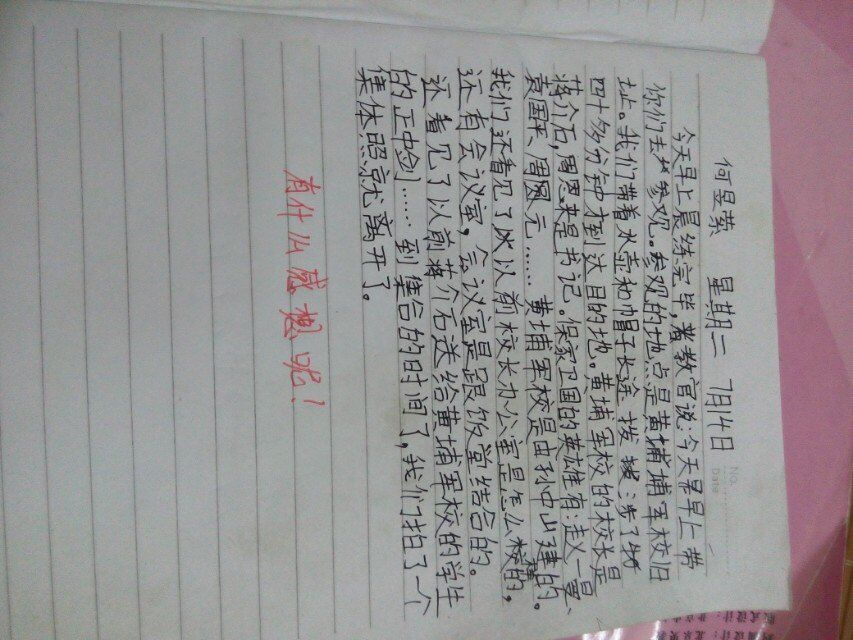 何昱萦 星期二 7月14日
No.
Date
今天早上晨练完毕,黄教官说:今天早上带
你们去参观。参观的地点是黄埔埔军校旧
址。我们带着水壶和帽子长途拨涉了
四十多分钟才到达目的地。黄埔军校的校长是
蒋介石,周恩来是书记。保家卫国的英雄有:赵一曼、
袁国平、周圆元……黄埔军校是由孙中山建的。
我们还看见了以前校长办公室是怎么样的,
还有会议室,会议室是跟饭堂结合的。
还看见了以前蒋介石送给黄埔军校的学生
的正中剑……到集合的时间了,我们拍了一个
集体照就离开了。
有什么感想呢!